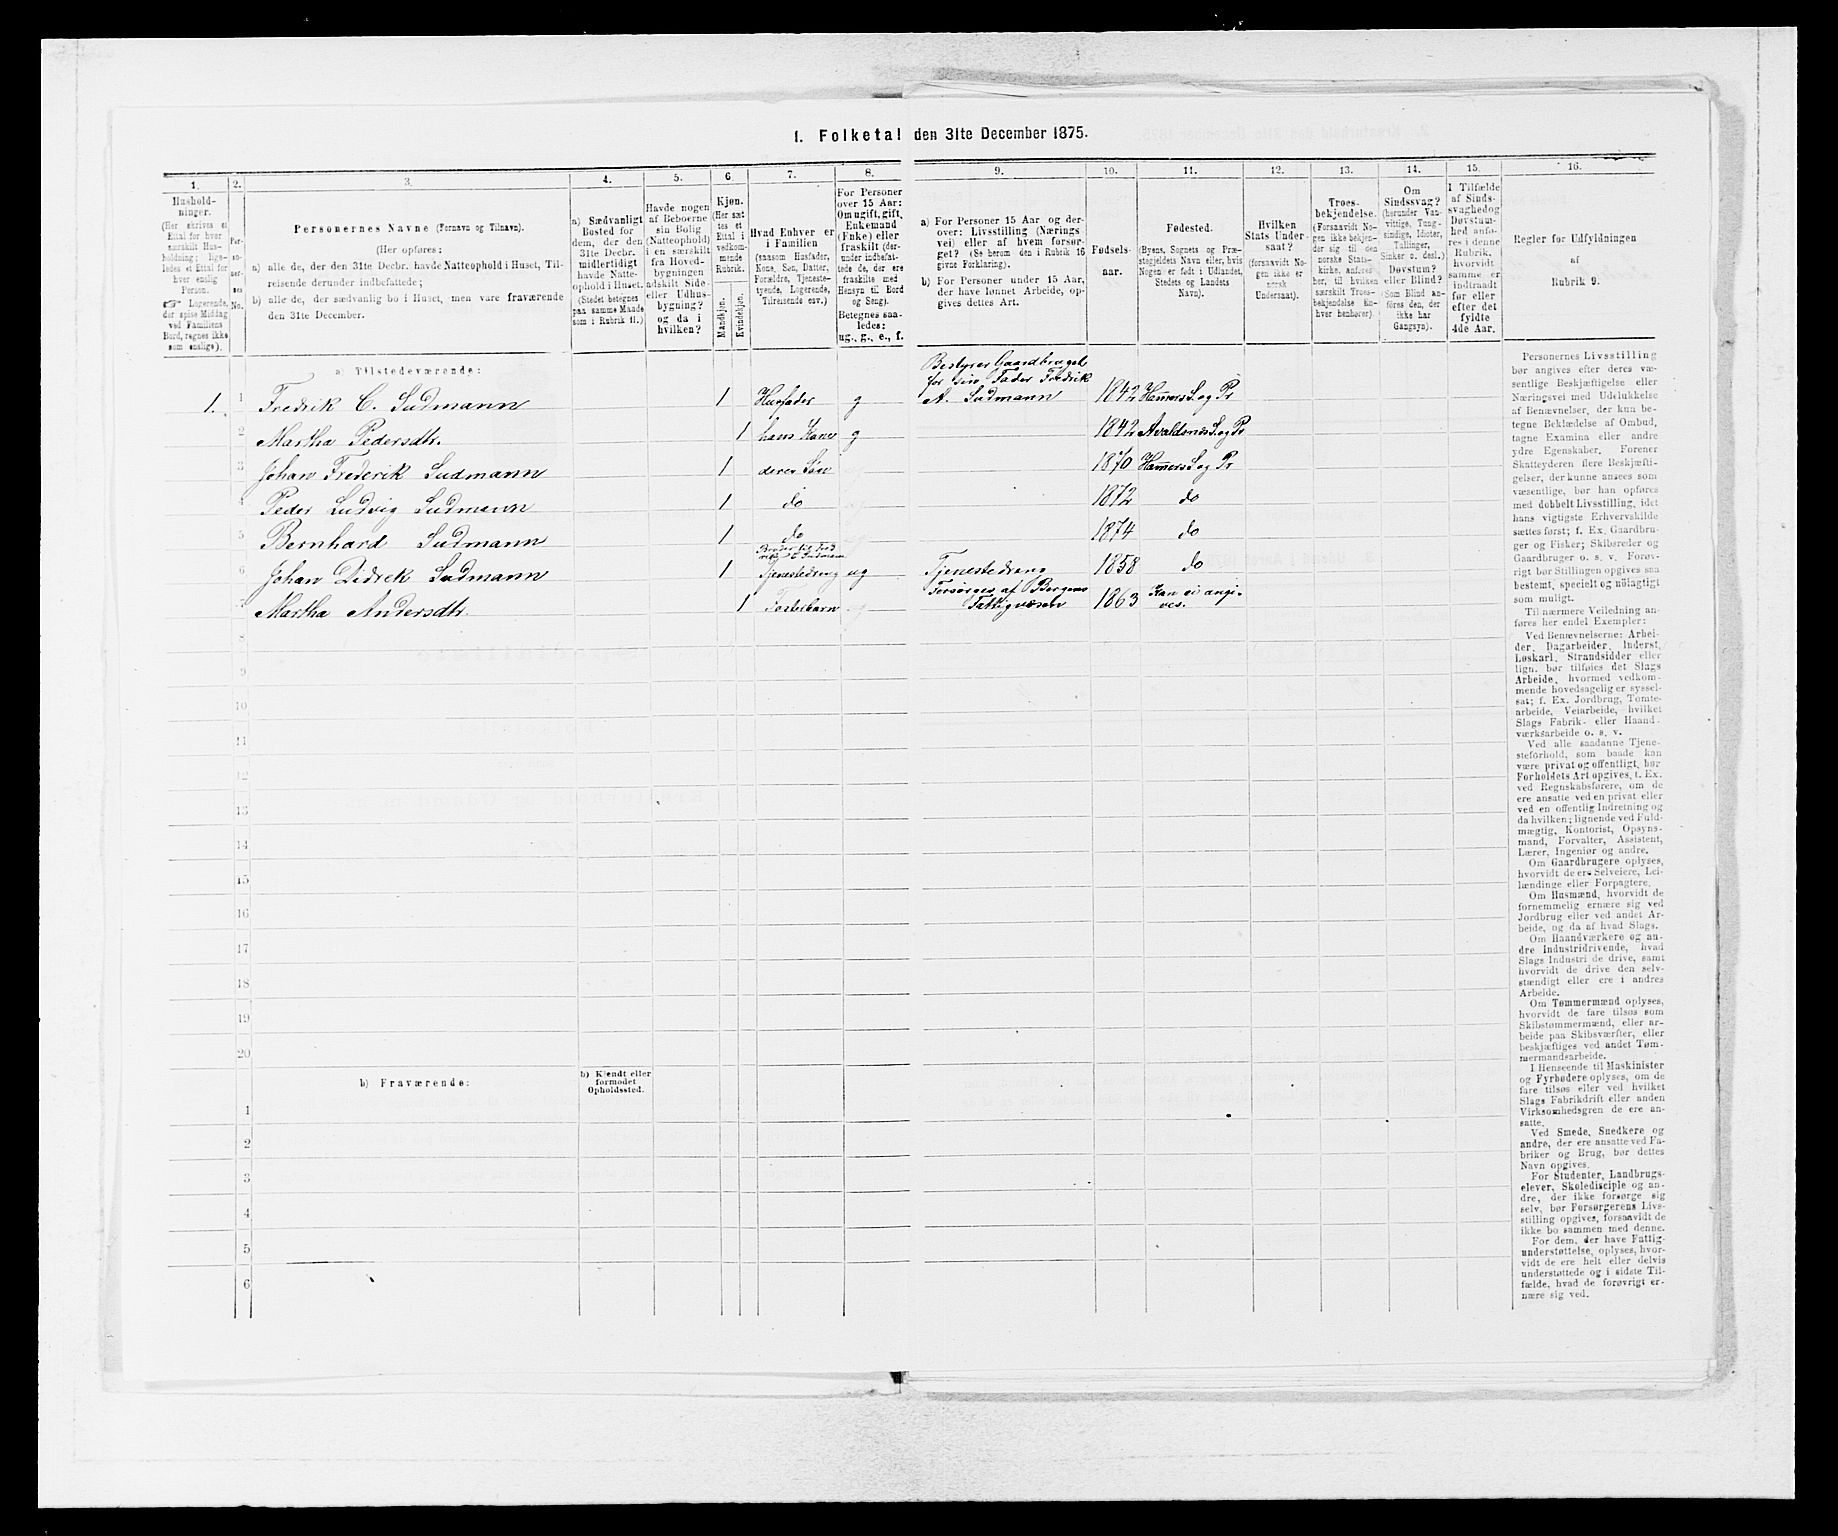 1. Folketal den 31te December 1875.
1. 2. 3. 4. 5. 6 7. 8. 9. 10. 11. 12. 13. 14. 15. 16.
Hushold-
ninger.
(Her skrives et
Ettal for hver
særskilt Hus-
holdning; lige-
ledes et Ettal for
hver enslig
Person.
☞ Logerende,
der spise Middag
ved Familiens
Bord, regnes ikke
som enslige).
Per-
so-
ner-
nes
No.
Personernes Navne (Fornavn og Tilnavn).
(Her opføres:
a) alle de, der den 31te Decbr. havde Natteophold i Huset, Til-
reisende derunder indbefattede;
b) alle de, der sædvanlig bo i Huset, men vare fraværende
den 31te December.
a) Sædvanligt
Bosted for
dem, der den
31te Decbr.
midlertidigt
havde Natte-
ophold i Huset.
(Stedet betegnes
paa samme Maade
som i Rubrik 11.)
Havde nogen
af Beboerne
sin Bolig
(Natteophold)
i en særskilt
fra Hoved-
bygningen
adskilt Side-
eller Udhus-
bygning?
og da i
hvilken?
Kjøn.
(Her sæt
tes et
Ettal i
vedkom-
mende
Rubrik.
Mandkjøn.
Kvindekjøn.
Hvad Enhver er
i Familien
(saasom Husfader,
Kone, Søn, Datter,
Forældre, Tjeneste-
tyende, Logerende,
Tilreisende osv.)
For Personer
over 15 Aar:
Om ugift, gift,
Enkemand
(Enke) eller
fraskilt (der-
under indbefat-
tede de, der ere
fraskilte med
Hensyn til Bord
og Seng).
Betegnes saa-
ledes:
ug., g., e., f.
a) For Personer 15 Aar og der-
over: Livsstilling (Nærings
vei) eller af hvem forsør-
get? (Se herom den i Rubrik 16
givne Forklaring).
b) For Personer under 15 Aar,
der have lønnet Arbeide, op-
gives dettes Art.
Fødsels-
aar.
Fødested.
(Byens, Sognets og Præ-
stegjeldets Navn eller, hvis
Nogen er født i Udlandet,
Stedets og Landets
Navn).
Hvilken
Stats Under-
saat?
(forsaavidt No-
gen ikke er
norsk
Undersaat).
Troes-
bekjendelse.
(Forsaavidt No-
gen ikke bekjen-
der sig til den
norske Stats-
kirke, anføres
her, til hvilken
særskilt Troes-
bekjendelse en-
hver henhører)
Om
Sindssvag?
(herunder Van-
vittige, Tung-
sindige, Idioter,
Tullinger,
Sinker o. desl.)
Døvstum?
eller Blind?
(Som Blind an-
føres den, der
ikke har
Gangsyn).
I Tilfælde
af Sinds-
svaghed og
Døvstum-
hed anfø-
res i denne
Rubrik,
hvorvidt
samme er
indtraadt
før eller
efter det
fyldte
4de Aar.
Regler for Udfyldningen
af
Rubrik 9.
a) Tilstedeværende:
1. 1 Fredrik C. Sudmann 1 Husfader g Bestyrer Gaardbruget for sin Fader Fredrik A. Sudmann 1842 Hamers S. og Pr
2 Martha Pedersdtr. 1 hans Kone g 1842 Avaldsnes S. og Pr
3 Johan Frederik Sudmann 1 deres Søn 1870 Hamers S. og Pr
4 Peder Ludvig Sudmann 1 do 1872 do
5 Bernhard Sudmann 1 do 1874 do
6 Johan Didrek Sudmann 1 Broder til Fred rik C Sudmann Tjenestedreng ug Tjenestedreng 1858 do
7 Martha Andersdtr. 1 Fosterbarn Forsørges af Bergens Fattigvæsen 1863 Kan ei angi- ves.
8
9
10
11
12
13
14
15
16
17
18
19
20
b) Fraværende:
b) Kjendt eller
formodet
Opholdssted.
1
2
3
4
5
6
Personernes Livsstilling
bør angives efter deres væ-
sentlige Beskjæftigelse eller
Næringsvei med Udelukkelse
af Benævnelser, der kun be-
tegne Beklædelse af Ombud,
tagne Examina eller andre
ydre Egenskaber. Forener
Skatteyderen flere Beskjæfti-
gelser, der kunne ansees som
væsentlige, bør han opføres
med dobbelt Livsstilling, idet
hans vigtigste Erhvervskilde
sættes først; f. Ex. Gaardbru-
ger og Fisker; Skibsreder og
Gaardbruger o. s. v. Forøv-
rigt bør Stillingen opgives saa
bestemt, specielt og nøiagtigt
som muligt.
Til nærmere Veiledning an-
føres her endel Exempler:
Ved Benævnelserne: Arbei-
der, Dagarbeider, Inderst,
Løskarl, Strandsidder eller
lign. bør tilføies det Slags
Arbeide, hvormed vedkom-
mende hovedsagelig er syssel-
sat; f. Ex. Jordbrug, Tomte-
arbeide, Veiarbeide, hvilket
Slags Fabrik- eller Haand-
værksarbeide o. s. v.
Ved alle saadanne Tjene-
steforhold, som baade kan
være privat og offentligt, bør
Forholdets Art opgives, t. Ex.
ved Regnskabsførere, om de
ere ansatte ved en privat eller
ved en offentlig Indretning og
da hvilken; lignende ved Fuld-
mægtig, Kontorist, Opsyns-
mand, Forvalter, Assistent,
Lærer, Ingeniør og andre.
Om Gaardbrugere oplyses,
hvorvidt de ere Selveiere, Lei-
lændinge eller Forpagtere.
Om Husmænd, hvorvidt de
fornemmelig ernære sig ved
Jordbrug eller ved andet Ar-
beide, og da af hvad Slags.
Om Haandværkere og an-
dre Industridrivende, hvad
Slags Industri de drive, samt
hvorvidt de drive den selv-
stændigt eller ere i andres
Arbeide.
Om Tømmermænd oplyses,
hvorvidt de fare tilsøs som
Skibstømmermænd, eller ar-
beide paa Skibsværfter, eller
beskjæftiges ved andet Tøm-
mermandsarbeide.
I Henseende til Maskinister
og Fyrbødere oplyses, om de
fare tilsøs eller ved hvilket
Slags Fabrikdrift eller anden
Virksomhedsgren de ere an-
satte.
Ved Smede, Snedkere og
andre, der ere ansatte ved Fa-
briker og Brug, bør dettes
Navn opgives.
For Studenter, Landbrugs-
elever, Skoledisciple og an-
dre, der ikke forsørge sig
selv, bør Forsørgerens Livs-
stilling opgives, forsaavidt de
ikke bo sammen med denne.
For dem, der have Fattig-
understøttelse, oplyses, hvor-
vidt de ere helt eller delvis
understøttede og i sidste Til-
fælde, hvad de forøvrigt er-
nære sig ved.